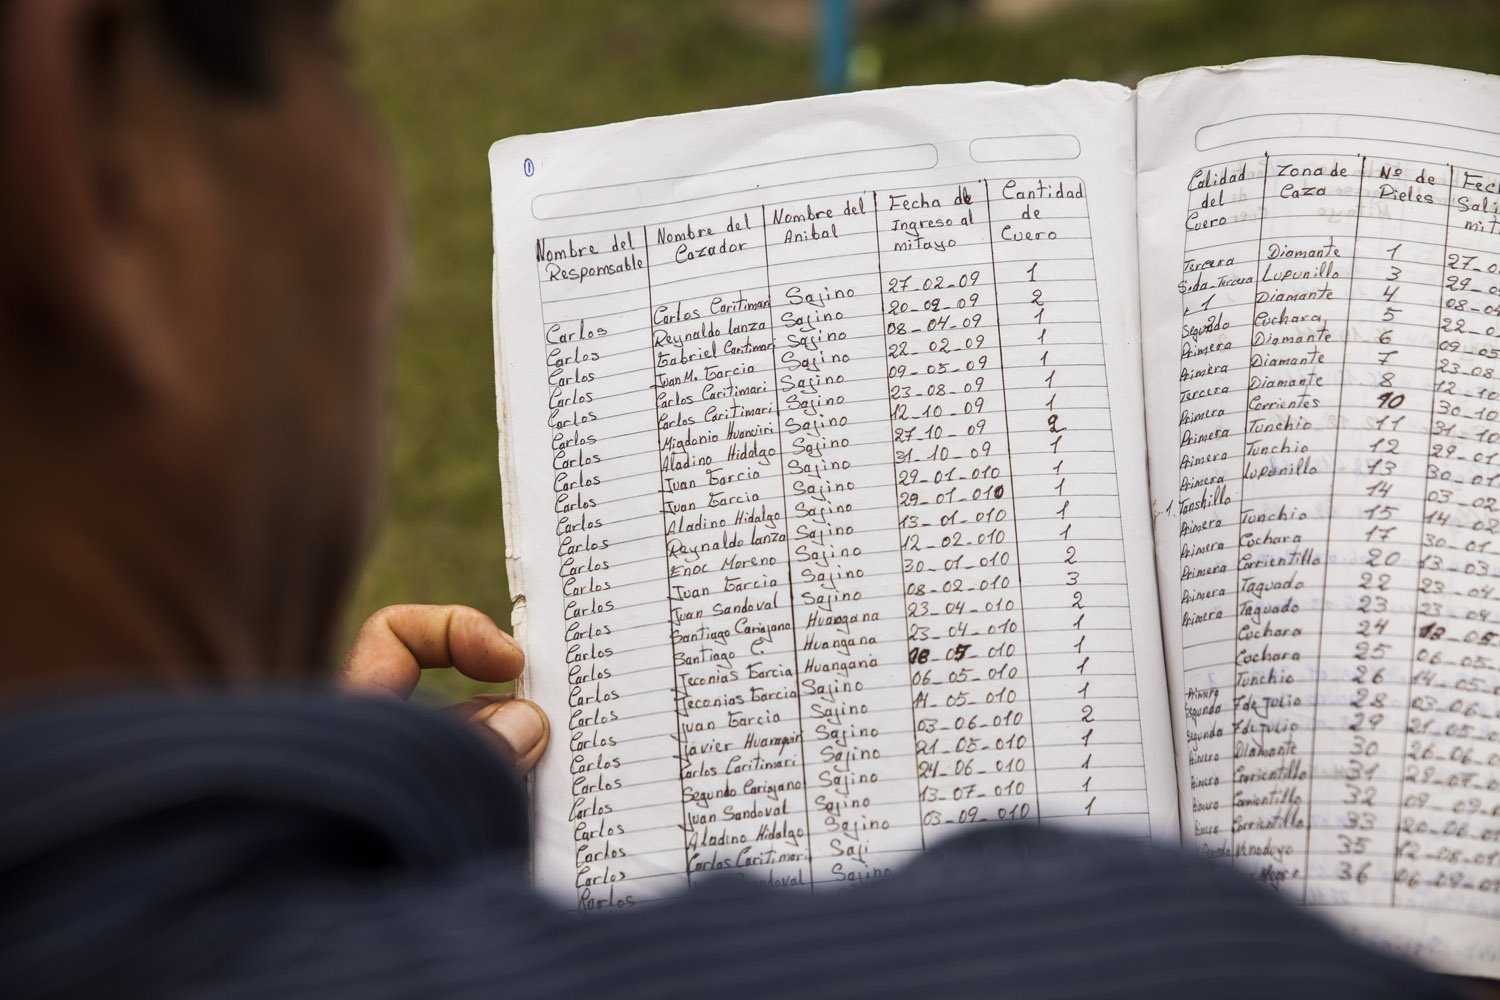 1
Nombre del Nombre del Nombre del Fecha de Cantidad
Responsable Cazador Anibal Ingreso al de
mitayo Cuero
Carlos Carlos Caritimari Sajino 27-02-09 1
Carlos Reynaldo Lanza Sajino 20-02-09 2
Carlos Gabriel Caritimari Sajino 08-04-09 1
Carlos Juan M. Garcia Sajino 22-02-09 1
Carlos Carlos Caritimari Sajino 09-05-09 1
Carlos Carlos Caritimari Sajino 23-08-09 1
Carlos Migdonio Huanuiri Sajino 12-10-09 1
Carlos Aladino Hidalgo Sajino 27-10-09 2
Carlos Juan Garcia Sajino 31-10-09 1
Carlos Juan Garcia Sajino 29-01-010 1
Carlos Aladino Hidalgo Sajino 29-01-010 1
Carlos Reynaldo Lanza Sajino 13-01-010 1
Carlos Enoc Moreno Sajino 12-02-010 1
Carlos Juan Garcia Sajino 30-01-010 2
Carlos Juan Sandoval Sajino 08-02-010 3
Carlos Santiago Cariajano Huangana 23-04-010 2
Carlos Santiago C. Huangana 23-04-010 1
Carlos Jeconias Garcia Huangana 18-05-010 1
Carlos Jeconias Garcia Sajino 06-05-010 1
Carlos Juan Garcia Sajino 14-05-010 1
Carlos Javier Sajino 03-06-010 2
Carlos Carlos Caritimari Sajino 21-05-010 1
Carlos Segundo Cariajano Sajino 24-06-010 1
Carlos Juan Sandoval Sajino 13-07-010 1
Carlos Aladino Hidalgo Sajino 03-09-010 1
Carlos Carlos Caritimari Saji
Carlos Sandoval Sajino
Calidad Zona de Nº de Fec
del Caza Pieles Sali
Cuero mit
Tercera Diamante 1 27-0
Seda-Tercera Lupunillo 3 29-0
1 Diamante 4 08-0
Segundo Cuchara 5 22-0
Primera Diamante 6 09-05
Primera Diamante 7 23-08
Tercera Diamante 8 12-10
Primera Corrientes 10 30-10
Primera Tunchio 11 31-10
Primera Tunchio 12 29-01
Primera Lupunillo 13 30-01
Tanshillo 14 03-02
Primera Tunchio 15 14-02
Primera Cuchara 17 30-01
Primera Corrientillo 20 13-03
Primera Taguado 22 23-04
Primera Taguado 23 23-04
Cuchara 24 18-05
Cuchara 25 06-05
Tunchio 26 14-05
Primera 7 de Julio 28 03-06
Segunda 7 de Julio 29 21-05
Segunda Diamante 30 26-06
Primera Corrientillo 31
Corrientillo 32
Corrientillo 33
35
36